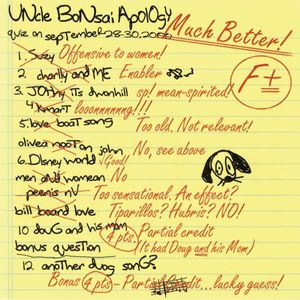 UNcle BoNsai Apology
quiz on september 28-30, 2006
Much Better!
F±
1. Suzy Offensive to women!
2. charlly and ME Enabler
3. JOthy its downhill sp! mean-spirited!
4. Kmart looonnnnnng!!!
5. love boat song Too old. Not relevant!
olivea nooton john No, see above
6. Disney world Good!
men and womeon No
peenis nV Too sensational. An effect?
bill board love Tiparillos? Hubris? NO!
10 douG and his mom 4 pts. Partial credit
bonus question (It had Doug and his Mom)
12 another dug sonG?
Bonus 4 pts - Partial Credit...lucky guess!